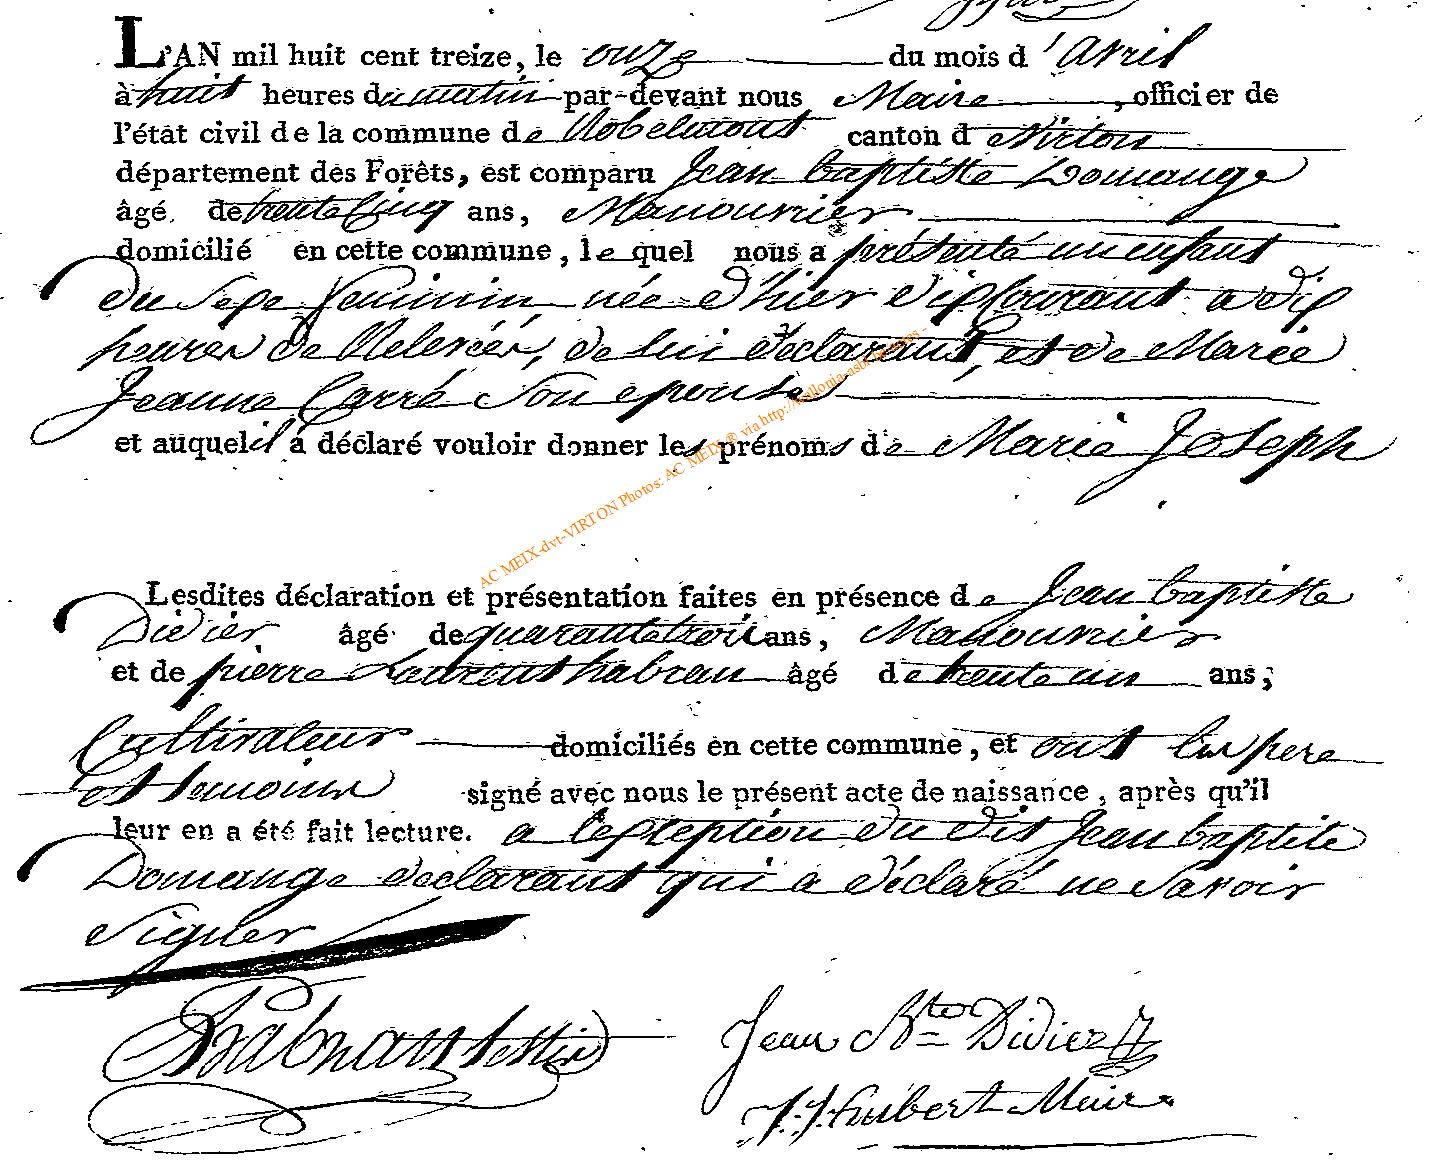 L'AN mil huit cent treize, le onze du mois d'avril
à huit heures du matin par-devant nous Maire, officier de
l'état civil de la commune de Robelmont canton de Virton
département des Forêts, est comparu Jean baptiste Domange
âgé de trente Cinq ans, Manouvrier
domicilié en cette commune, lequel nous a présenté un enfant
du Sexe feminin, née d'hier dix Courant a dix
heures de Relevées, de lui déclarant, et de Marie
Jeanne Carré Son epouse
et auquel il a déclaré vouloir donner les prénoms de Marie Joseph
AC MEIX-dvt-VIRTON Photos: AC MEIX ® via http://
Lesdites déclaration et présentation faites en présence de Jean baptiste
Didier âgé de quarante trois ans, Manouvrier
et de pierre Laurent habran âgé de trente un ans,
Cultivateur domiciliés en cette commune, et ont les pere
et temoins signé avec nous le présent acte de naissance, après qu'il
leur en a été fait lecture. a l'exception du dit Jean baptite
Domange déclarant qui a déclaré ne Savoir
Signer
Jean Bte Didier
J. J. Hubert Maire